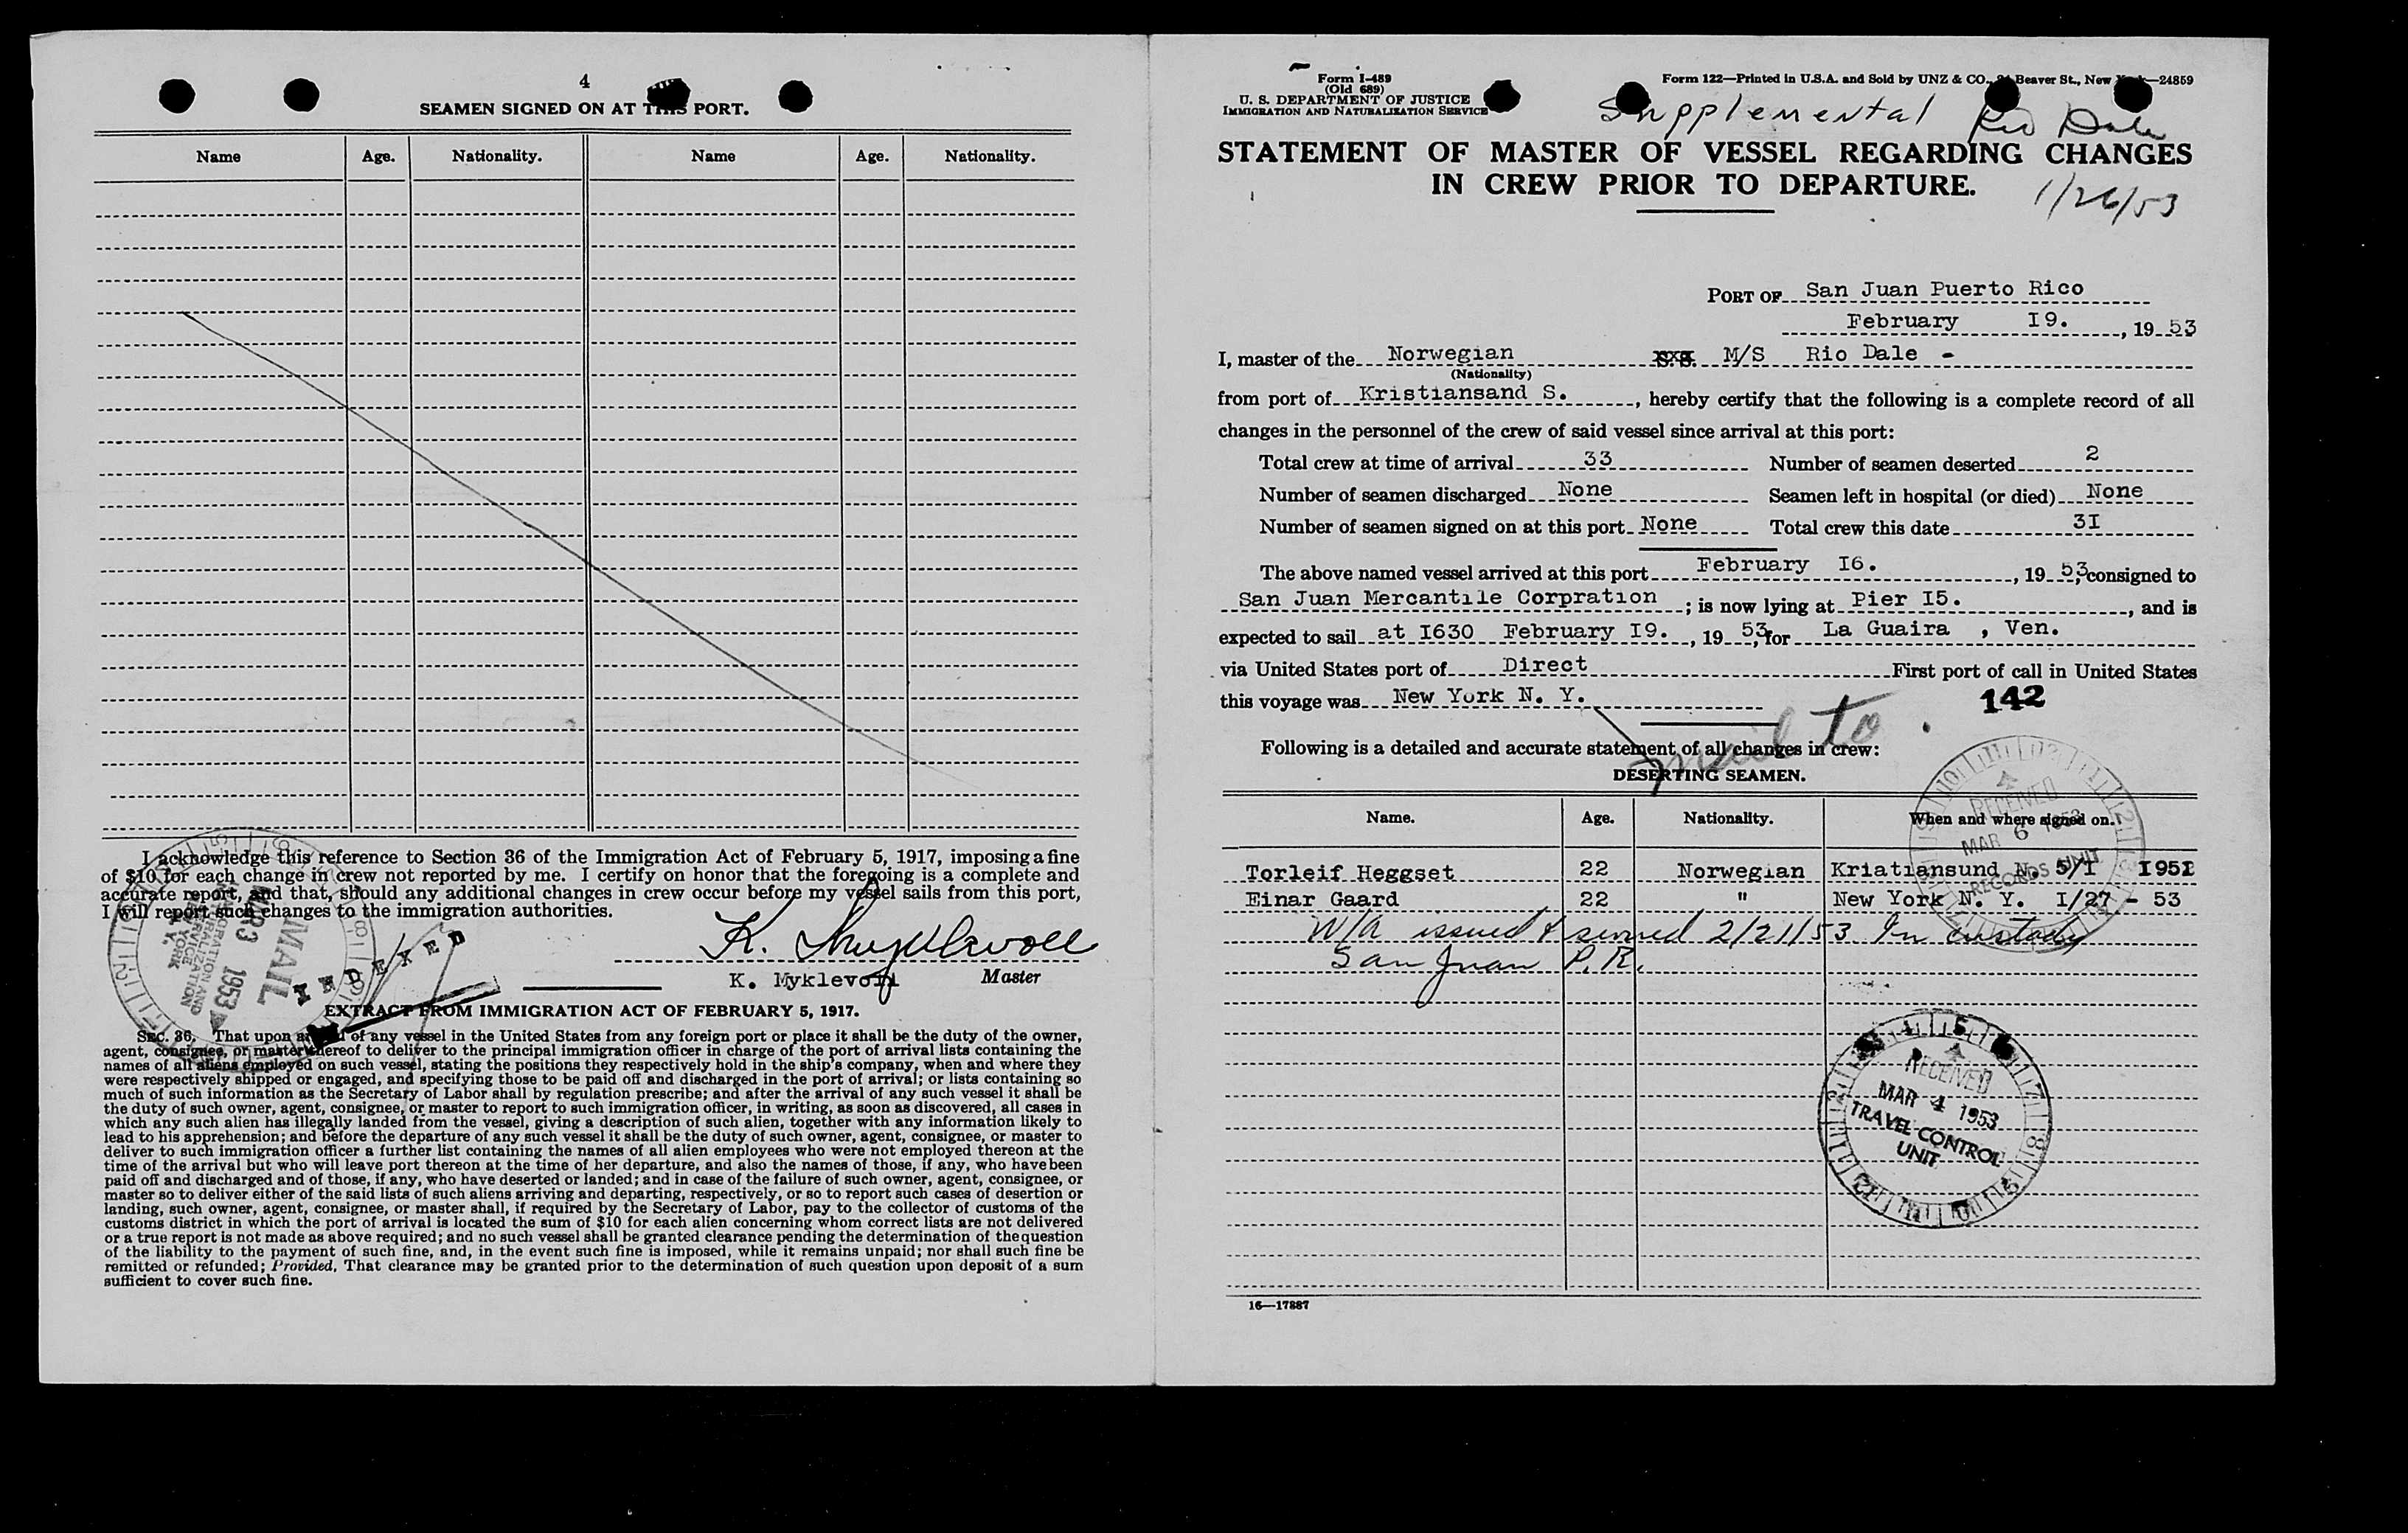 4
SEAMEN SIGNED ON AT THIS PORT.
Name Age. Nationality. Name Age. Nationality.
I acknowledge this reference to Section 36 of the Immigration Act of February 5, 1917, imposing a fine
of $10 for each change in crew not reported by me. I certify on honor that the foregoing is a complete and
accurate report, and that, should any additional changes in crew occur before my vessel sails from this port,
I will report such changes to the immigration authorities.
MAIL
MAR 3 1953
IMMIGRATION AND
NATURALIZATION
SERVICE
NEW YORK
N. Y.
INDEXED
K. Myklevoll
K. Myklevoll Master
EXTRACT FROM IMMIGRATION ACT OF FEBRUARY 5, 1917.
SEC. 36. That upon arrival of any vessel in the United States from any foreign port or place it shall be the duty of the owner,
agent, consignee, or master thereof to deliver to the principal immigration officer in charge of the port of arrival lists containing the
names of all aliens employed on such vessel, stating the positions they respectively hold in the ship's company, when and where they
were respectively shipped or engaged, and specifying those to be paid off and discharged in the port of arrival; or lists containing so
much of such information as the Secretary of Labor shall by regulation prescribe; and after the arrival of any such vessel it shall be
the duty of such owner, agent, consignee, or master to report to such immigration officer, in writing, as soon as discovered, all cases in
which any such alien has illegally landed from the vessel, giving a description of such alien, together with any information likely to
lead to his apprehension; and before the departure of any such vessel it shall be the duty of such owner, agent, consignee, or master to
deliver to such immigration officer a further list containing the names of all alien employees who were not employed thereon at the
time of the arrival but who will leave port thereon at the time of her departure, and also the names of those, if any, who have been
paid off and discharged and of those, if any, who have deserted or landed; and in case of the failure of such owner, agent, consignee, or
master so to deliver either of the said lists of such aliens arriving and departing, respectively, or so to report such cases of desertion or
landing, such owner, agent, consignee, or master shall, if required by the Secretary of Labor, pay to the collector of customs of the
customs district in which the port of arrival is located the sum of $10 for each alien concerning whom correct lists are not delivered
or a true report is not made as above required; and no such vessel shall be granted clearance pending the determination of the question
of the liability to the payment of such fine, and, in the event such fine is imposed, while it remains unpaid; nor shall such fine be
remitted or refunded; Provided, That clearance may be granted prior to the determination of such question upon deposit of a sum
sufficient to cover such fine.
Form I-489
(Old 689)
U. S. DEPARTMENT OF JUSTICE
IMMIGRATION AND NATURALIZATION SERVICE
Form 122—Printed in U.S.A. and Sold by UNZ & CO., 24 Beaver St., New York—24859
Supplemental Rio Dale
STATEMENT OF MASTER OF VESSEL REGARDING CHANGES
IN CREW PRIOR TO DEPARTURE.
1/26/53
PORT OF San Juan Puerto Rico
February I9. , 19 53
I, master of the Norwegian S.S. M/S Rio Dale -
(Nationality)
from port of Kristiansand S. , hereby certify that the following is a complete record of all
changes in the personnel of the crew of said vessel since arrival at this port:
Total crew at time of arrival 33 Number of seamen deserted 2
Number of seamen discharged None Seamen left in hospital (or died) None
Number of seamen signed on at this port None Total crew this date 3I
The above named vessel arrived at this port February I6. , 19 53, consigned to
San Juan Mercantile Corpration ; is now lying at Pier I5. , and is
expected to sail at I630 February I9. , 19 53, for La Guaira , Ven.
via United States port of Direct First port of call in United States
this voyage was New York N. Y.
142
to
Following is a detailed and accurate statement of all changes in crew:
DESERTING SEAMEN.
Name. Age. Nationality. When and where signed on.
RECEIVED
MAR 6 1953
RECORDS UNIT
Torleif Heggset 22 Norwegian Kriatiansund N. 5/I I952
Einar Gaard 22 " New York N. Y. I/27 - 53
W/A issued & served 2/21/53 In custody
San Juan P.R.
RECEIVED
MAR 4 1953
TRAVEL CONTROL
UNIT
16—17887